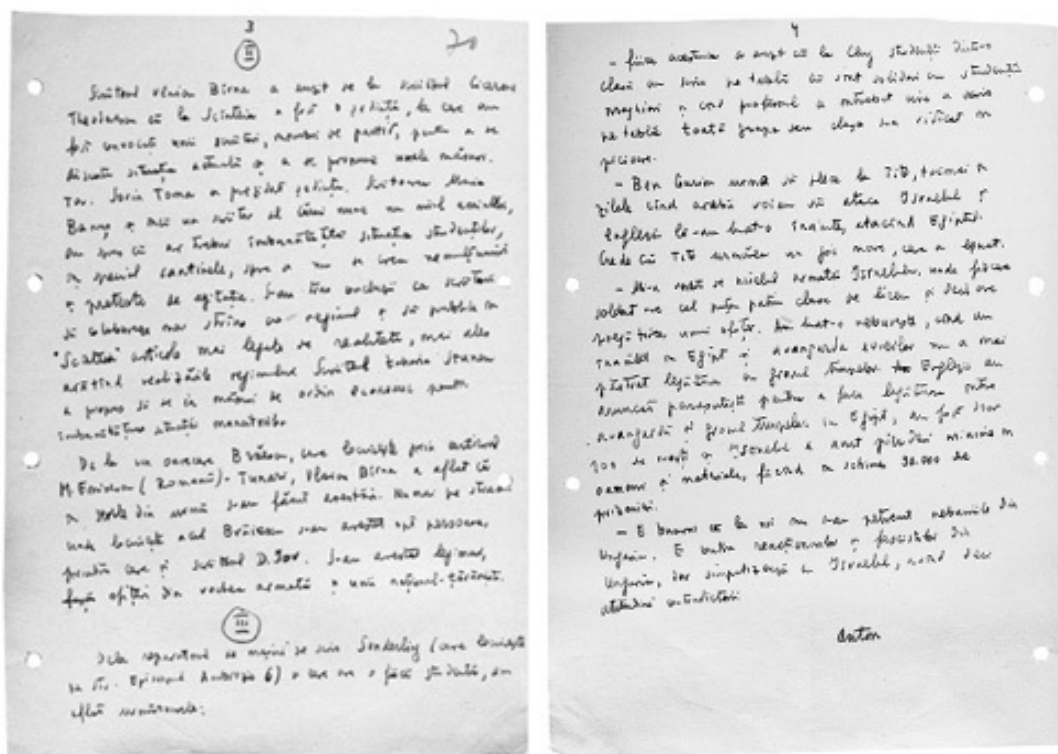 3
II
20
Scriitorul Vlaicu Bârna a auzit de la scriitorul Cicerone
Theodorescu că la Scînteia a fost o ședință, la care au
fost convocați unii scriitori, membri de partid, pentru a se
discuta situația actuală și a se propune unele măsuri.
Tov. Sorin Toma a prezidat ședința. Scriitoarea Maria
Banuș și încă un scriitor al cărui nume nu mi-l amintesc,
au spus că ar trebui îmbunătățită situația studenților,
în special cantinele, spre a nu se crea nemulțumiri
și pretexte de agitație. S-au ținut ca scriitorii
să colaboreze mai strîns cu regimul și să publice în
"Scînteia" articole mai legate de realitate, mai ales
arătînd realizările regimului. Scriitorul Zaharia Stancu
a propus să se ia măsuri de ordin economic pentru
îmbunătățirea situației muncitorilor.
De la un oarecare Brăiescu, care locuiește prin cartierul
M. Eminescu (Romană)-Tunari, Vlaicu Bârna a aflat că
în zilele din urmă s-au făcut arestări. Numai pe strada
unde locuiește acel Brăiescu s-au arestat opt persoane,
printre care și scriitorul D. Iov. S-au arestat legionari,
foști ofițeri din vechea armată și unii național-țărăniști.
III
Dela reparatorul de mașini de scris Senderling (care locuiește
în str. Episcopul Ambrozie 6) și care are o fiică studentă, am
aflat următoarele:
4
- fiica acestuia a auzit că la Cluj studenții dintr-o
clasă au scris pe tablă că sunt solidari cu studenții
maghiari și cînd profesorul a întrebat cine a scris
pe tablă toată grupa sau clasa s-a ridicat în
picioare.
- Ben Gurion urma să plece la Tito, tocmai în
zilele cînd arabii voiau să atace Israelul și
Englezii le-au luat-o înainte, atacînd Egiptul.
Crede că Tito urmărea un joc mare, care a eșuat.
- Mi-a vorbit de nivelul armatei Israelului, unde fiecare
soldat are cel puțin patru clase de liceu și deci are
pregătirea unui ofițer. Au luat-o nebunește, cînd au
înaintat în Egipt și avangarda evreilor nu a mai
păstrat legătura cu grosul trupelor. Englezii au
aruncat parașutiști pentru a face legătura între
avangardă și grosul trupelor. În Egipt, au fost doar
200 de morți și Israelul a avut pierderi minime în
oameni și materiale, făcînd în schimb 30.000 de
prizonieri.
- E bucuros că la noi nu s-au petrecut nebuniile din
Ungaria. E contra reacționarilor și fasciștilor din
Ungaria, dar simpatizează cu Israelul, avînd deci
atitudini contradictorii.
Anton